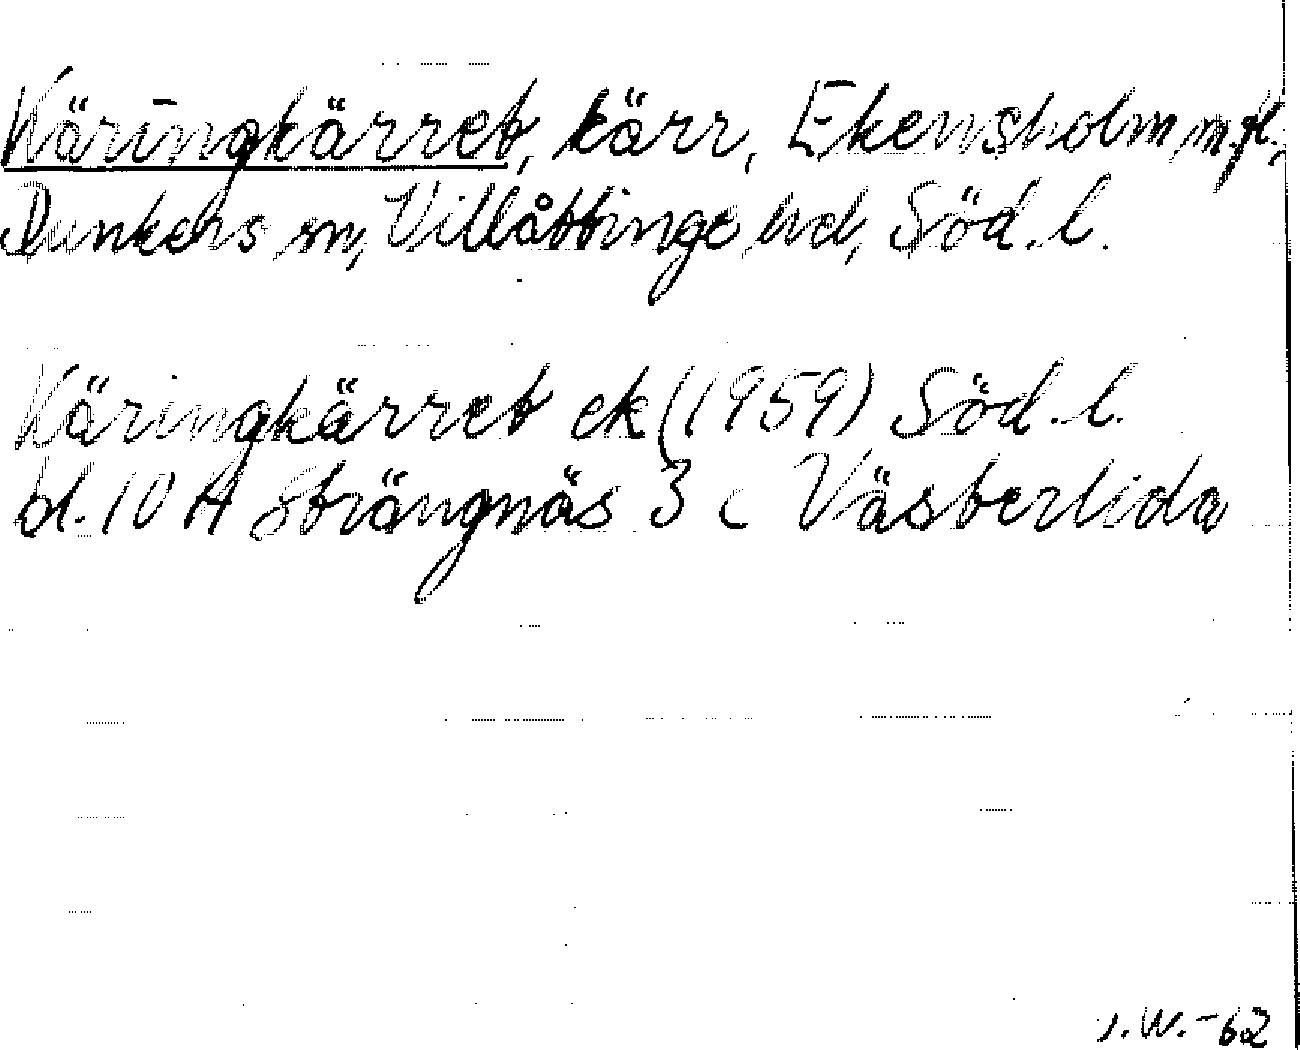 Käringkärret, kärr, Ekensholm m.fl.,
Dunkers sn, Villåttinge hd, Söd. l.
Käringkärret ek (1959) Söd. l.
bl. 10 H Strängnäs 3 c Västerlida
I.W.-62